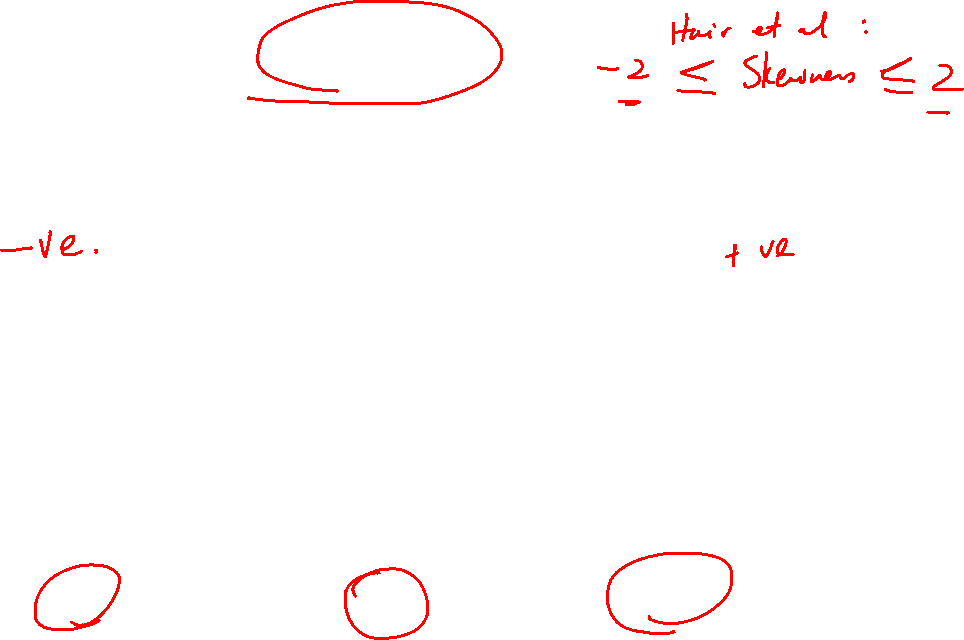 Hair et al :
-2 ≤ Skewness ≤ 2
-ve.
+ve